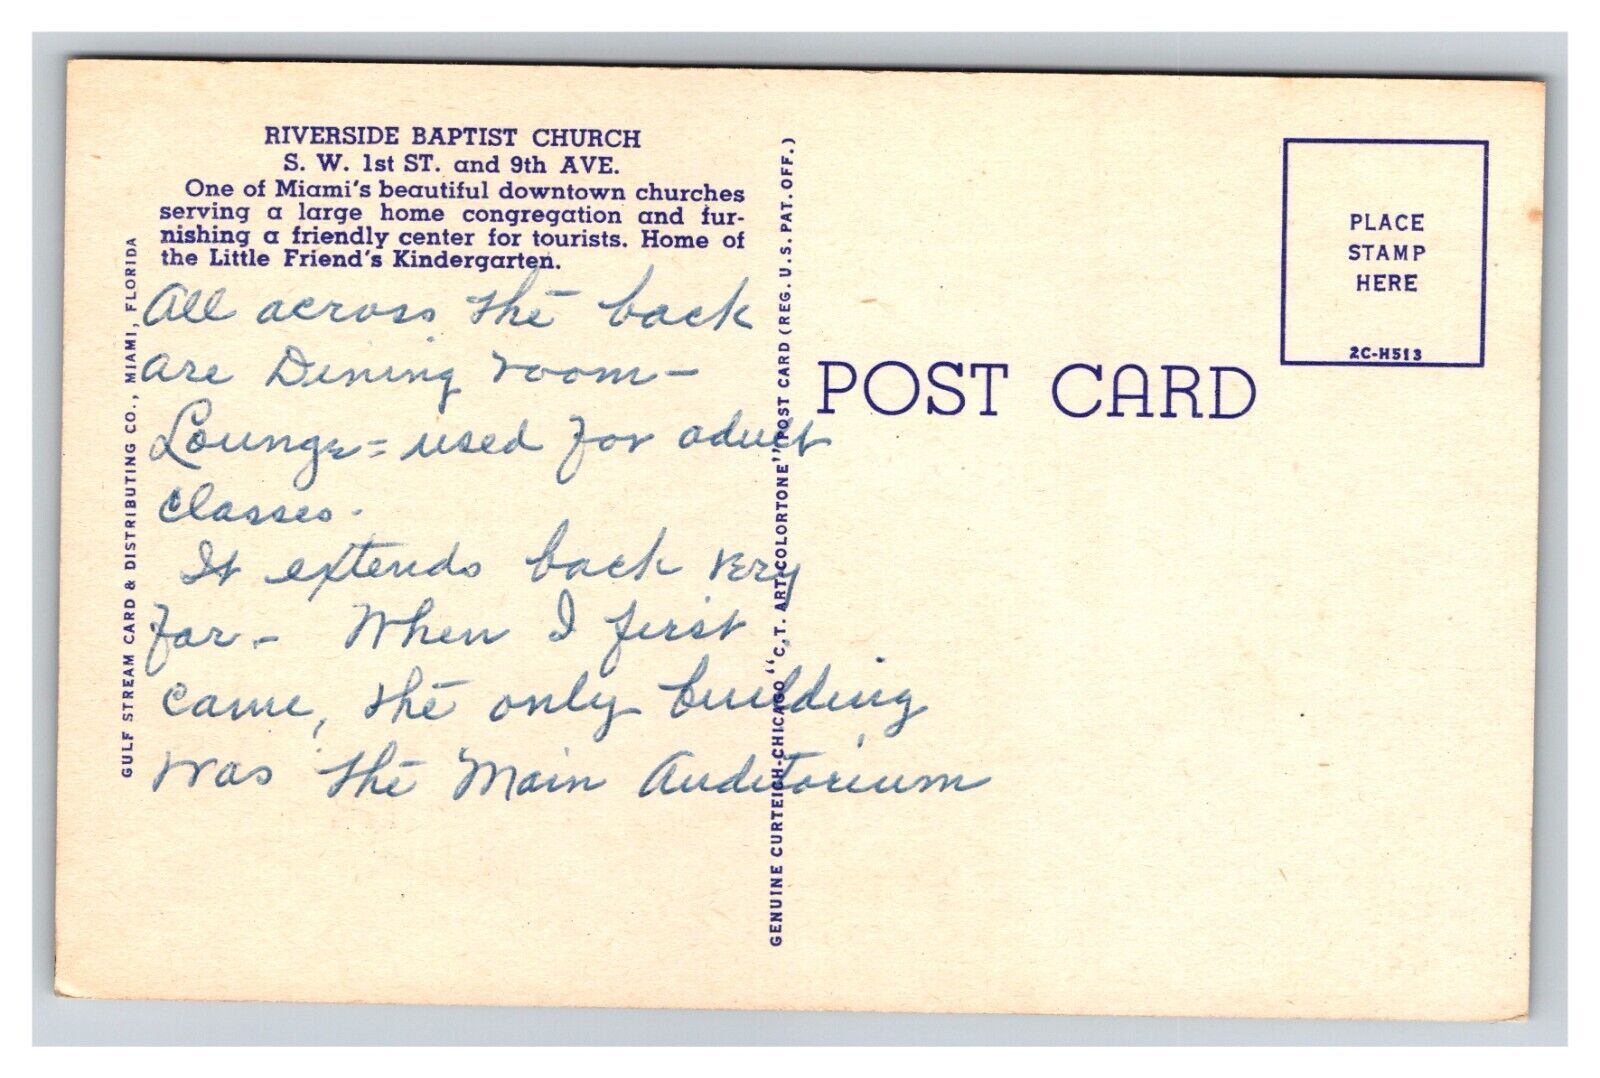 RIVERSIDE BAPTIST CHURCH
S. W. 1st ST. and 9th AVE.
One of Miami's beautiful downtown churches
serving a large home congregation and fur-
nishing a friendly center for tourists. Home of
the Little Friend's Kindergarten.
All across the back
are Dining room –
Lounge = used for adult
classes.
It extends back very
far – When I first
came, the only building
was the Main Auditorium
GULF STREAM CARD & DISTRIBUTING CO., MIAMI, FLORIDA
GENUINE CURTEICH-CHICAGO "C.T. ART-COLORTONE" POST CARD (REG. U.S. PAT. OFF.)
POST CARD
PLACE
STAMP
HERE
2C-H513